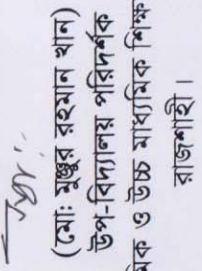 (মোঃ মুঞ্জুর রহমান খান)
উপ-বিদ্যালয় পরিদর্শক
মিক ও উচ্চ মাধ্যমিক শিক্ষ
রাজশাহী।